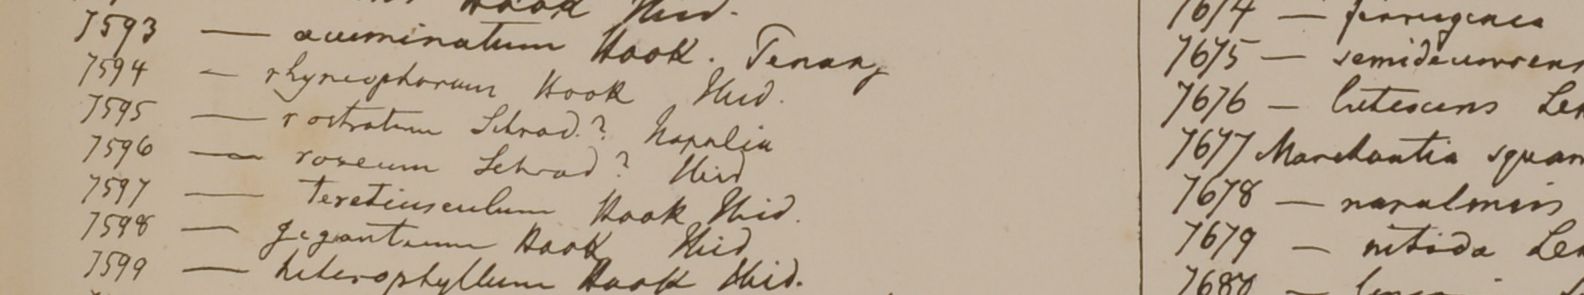 Hook Ibid.
7593 — acuminatum Hook. Penang
7594 — rhyncophorum Hook Ibid.
7595 — rostratum Schrad.? Napalia
7596 — roseum Schrad? Ibid
7597 — teretiusculum Hook Ibid.
7598 — giganteum Hook Ibid
7599 — heterophyllum Hook Ibid.
7674 — ferruginea
7675 — semidecurrens
7676 — lutescens Le
7677 Marchantia squam
7678 — 
7679 — nitida Le
7680 —